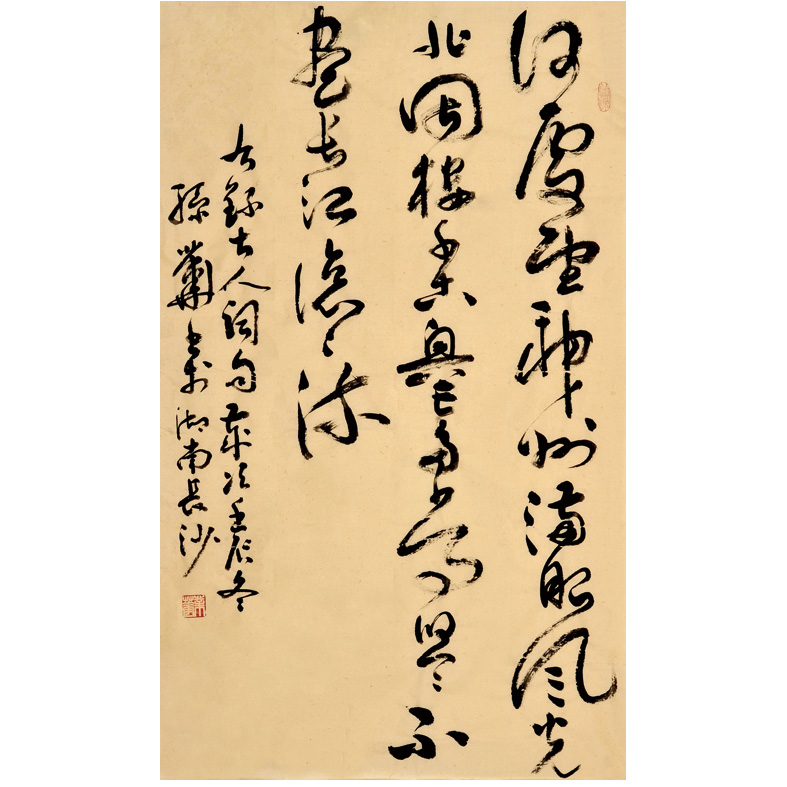 何處望神州滿眼風光
北固樓千古興亡多少事悠悠不
盡長江滾滾流
右錄古人詞句歲次壬辰冬
孫書於湖南長沙